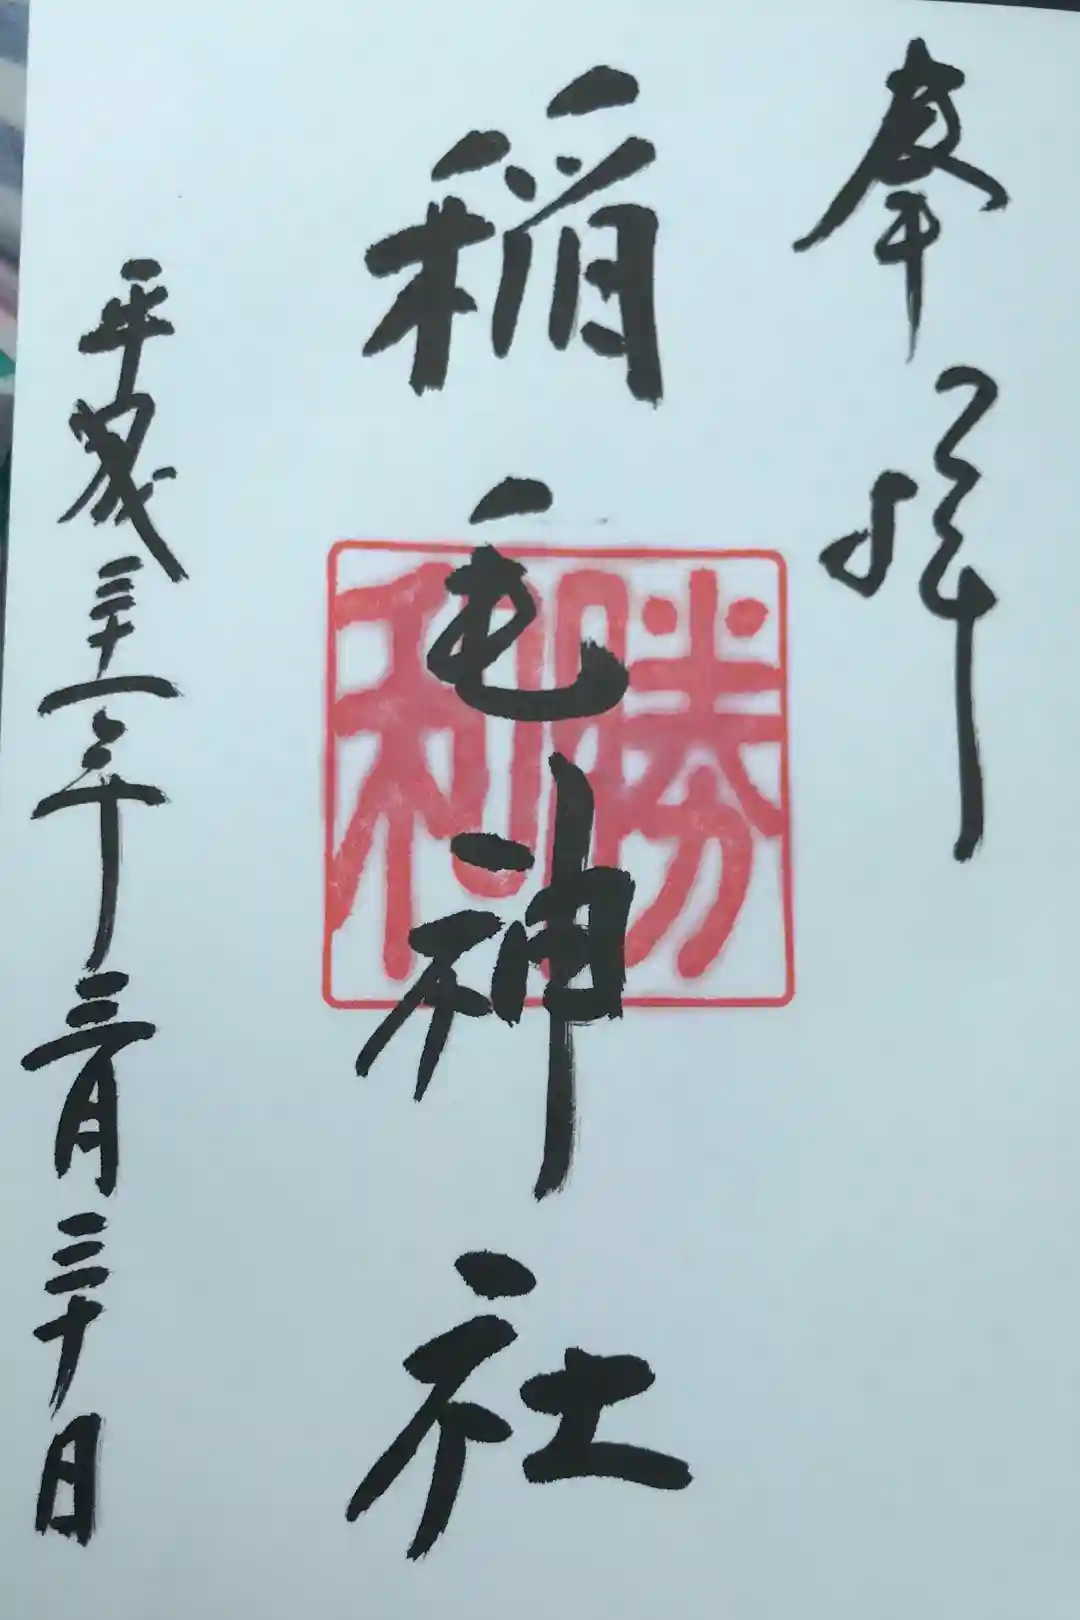 奉拝
稲毛神社
勝和
平成三十一年三月三十日